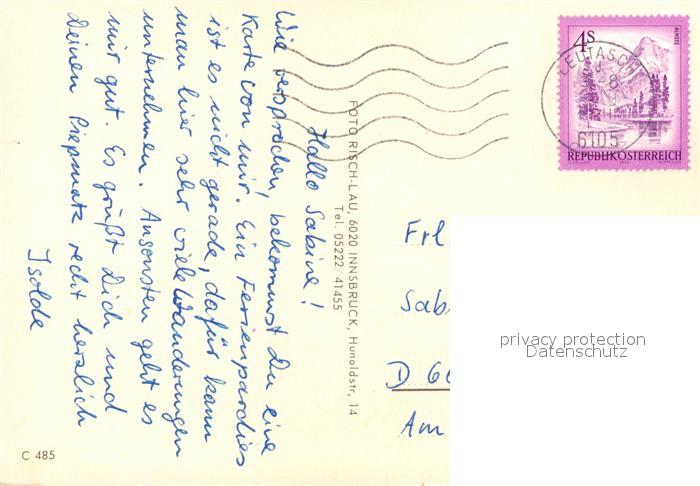 Hallo Sabine!
Wie versprochen, bekommst Du eine
Karte von mir. Ein Ferienparadies
ist es nicht gerade, dafür kann
man hier sehr viele Wanderungen
unternehmen. Ansonsten geht es
mir gut. Es grüßt Dich und
Deinen Piepmatz recht herzlich
Isolde
C 485
FOTO RISCH-LAU, 6020 INNSBRUCK, Hunoldstr, 14
Tel. 05222/41455
4s
ALMSEE
REPUBLIK ÖSTERREICH
LEUTASCH
6105
Frl.
Sab
D 66
Am
privacy protection
Datenschutz